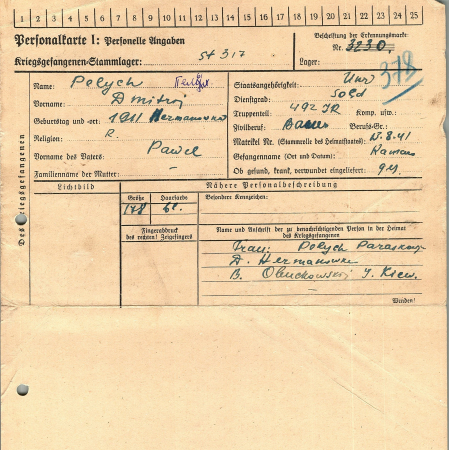 1 2 3 4 5 6 7 8 9 10 11 12 13 14 15 16 17 18 19 20 21 22 23 24 25
Personalkarte I: Personelle Angaben
Kriegsgefangenen-Stammlager: St 317
Beschriftung der Erkennungsmarke
Nr. 3230.
Lager:
378
Des Kriegsgefangenen
Name: Pelych
Vorname: Dmitrij
Geburtstag und -ort: 1911 Hermanowka
Religion: R.
Vorname des Vaters: Pawel
Familienname der Mutter: -
Staatsangehörigkeit: Ukr
Dienstgrad: Sold
Truppenteil: 492 JR Komp. usw.:
Zivilberuf: Bauer Berufs-Gr.:
Matrikel Nr. (Stammrolle des Heimatstaates):
Gefangennahme (Ort und Datum):
Ob gesund, krank, verwundet eingeliefert:
Lichtbild
Nähere Personalbeschreibung
Größe Haarfarbe
178
Besondere Kennzeichen:
Fingerabdruck
des rechten! Zeigefingers
Name und Anschrift der zu benachrichtigenden Person in der Heimat
des Kriegsgefangenen
Frau: Pelych
D. Hermanowka
B. Obuchowskij G. Kiew.
Wenden!